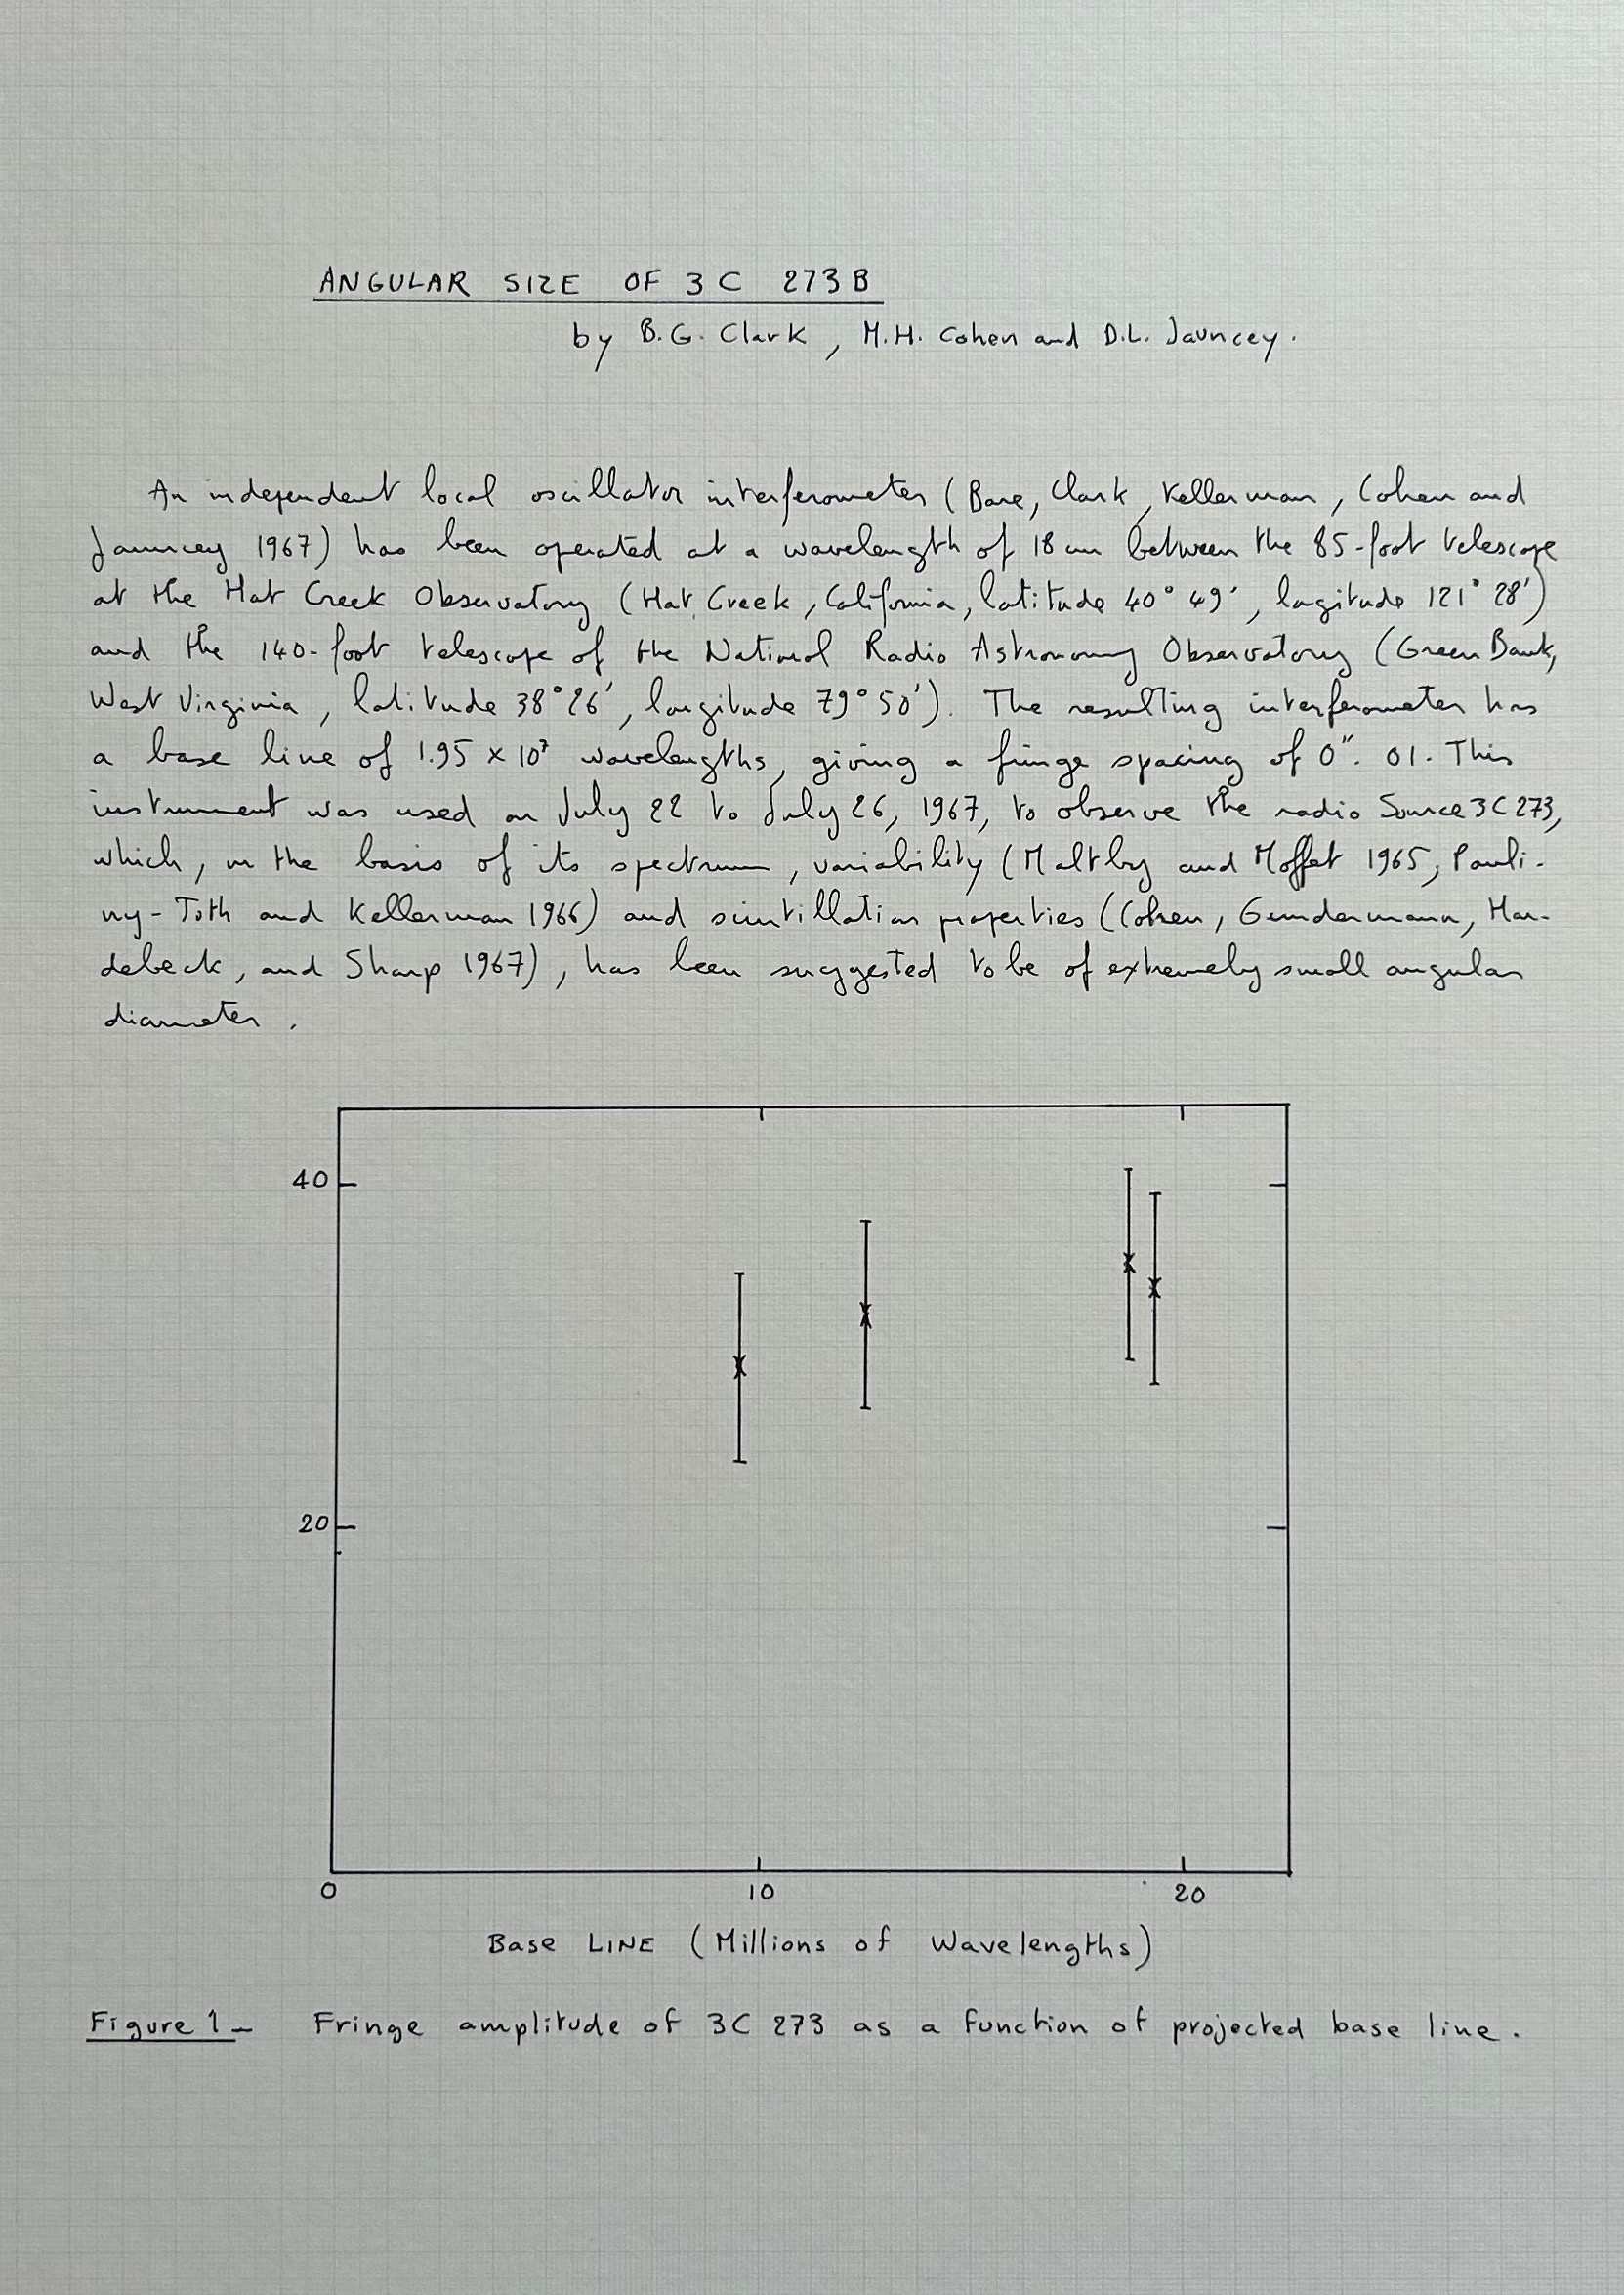 ANGULAR SIZE OF 3C 273B
by B.G. Clark, M.H. Cohen and D.L. Jauncey.
An independent local oscillator interferometer (Bare, Clark, Kellerman, Cohen and
Jauncey 1967) has been operated at a wavelength of 18 cm between the 85-foot telescope
at the Hat Creek Observatory (Hat Creek, California, latitude 40° 49', lagitude 121° 28')
and the 140-foot telescope of the National Radio Astronomy Observatory (Green Bank,
West Virginia, latitude 38° 26', longitude 79° 50'). The resulting interferometer has
a base line of 1.95 x 10⁷ wavelengths, giving a fringe spacing of 0". 01. This
instrument was used on July 22 to July 26, 1967, to observe the radio Source 3C 273,
which, on the basis of its spectrum, variability (Maltby and Moffet 1965, Pauli-
ny-Toth and Kellerman 1966) and scintillation properties (Cohen, Gundermann, Har-
debeck, and Sharp 1967), has been suggested to be of extremely small angular
diameter.
40
20
0 10 20
Base LINE (Millions of Wavelengths)
Figure 1- Fringe amplitude of 3C 273 as a function of projected base line.